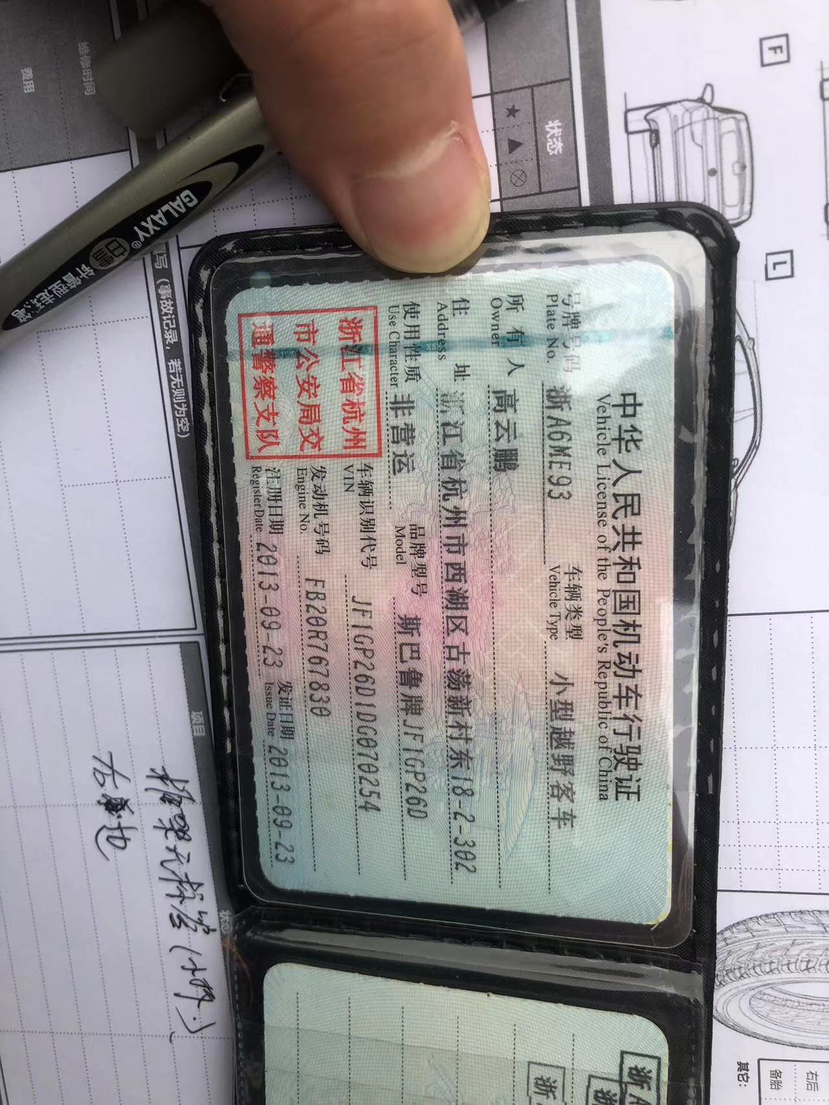 中华人民共和国机动车行驶证
Vehicle License of the People's Republic of China
号牌号码 浙A6ME93 车辆类型 小型越野客车
Plate No. Vehicle Type
所有人 高云鹏
Owner
住址 浙江省杭州市西湖区古荡新村东18-2-302
Address
使用性质 非营运 品牌型号 斯巴鲁牌JF1GP26D
Use Character Model
浙江省杭州
市公安局交
通警察支队
车辆识别代号 JF1GP26D1DG070254
VIN
发动机号码 FB20R767830
Engine No.
注册日期 2013-09-23 发证日期 2013-09-23
Register Date Issue Date
状态
★ ▲ ⊗
F
L
维修时间
费用
GALAXY
填写（事故记录，若无则为空）
项目
状态
右后
备胎
其它：
浙A
浙
浙